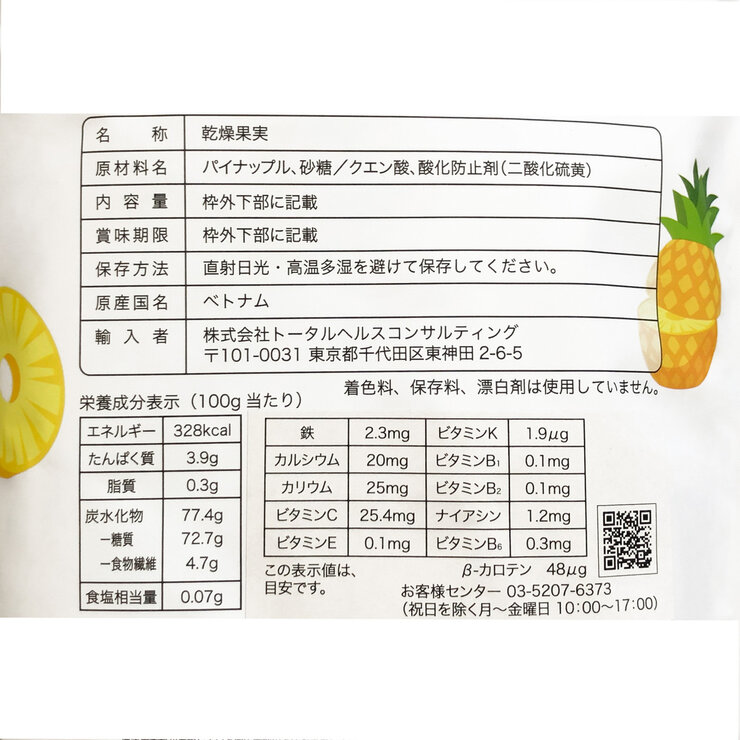 名称 乾燥果実
原材料名 パイナップル、砂糖／クエン酸、酸化防止剤(二酸化硫黄)
内容量 枠外下部に記載
賞味期限 枠外下部に記載
保存方法 直射日光・高温多湿を避けて保存してください。
原産国名 ベトナム
輸入者 株式会社トータルヘルスコンサルティング
〒101-0031 東京都千代田区東神田 2-6-5
着色料、保存料、漂白剤は使用していません。
栄養成分表示（100g 当たり）
エネルギー 328kcal
たんぱく質 3.9g
脂質 0.3g
炭水化物 77.4g
ー糖質 72.7g
ー食物繊維 4.7g
食塩相当量 0.07g
鉄 2.3mg ビタミンK 1.9μg
カルシウム 20mg ビタミンB1 0.1mg
カリウム 25mg ビタミンB2 0.1mg
ビタミンC 25.4mg ナイアシン 1.2mg
ビタミンE 0.1mg ビタミンB6 0.3mg
β-カロテン 48μg
この表示値は、
目安です。
お客様センター 03-5207-6373
(祝日を除く月〜金曜日 10:00〜17:00)